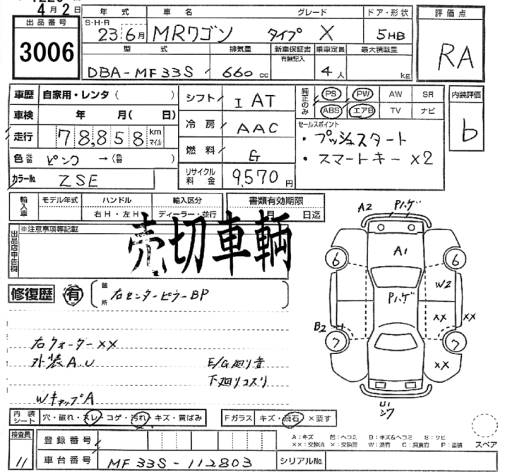 4月2日
出品番号 3006
年式 車名 グレード ドア・形状
S・H・R 23年6月 MRワゴン タイプ X 5HB
型式 排気量 新車保証書 有無記入 乗車定員 最大積載量
DBA-MF33S 660cc 4人 kg
評価点 RA
車歴 自家用・レンタ( )
車検 年 月( 日)
走行 78,858 km マイル
色替 ピンク →(色替)
カラーNo. ZSE
シフト I AT
冷房 AAC
燃料 G
リサイクル料金 9,570円
PS PW AW SR
ABS エアB TV ナビ
セールスポイント
・プッシュスタート
・スマートキー×2
内装評価 b
輸入車 モデル年式 ハンドル 輸入区分 書類有効期限
右H・左H ディーラー・並行 月 日迄
※注意事項等記載
売切車輌
修復歴 有 箇所 右センターピラーBP
右クォーター××
外装A.U E/G廻り音
下廻りコスリ
WキャップA
A2 Pハゲ
A1
6 6
Pハゲ W2
B2 ××
7 7
××
U1
内装シート 穴・破れ・スレ・コゲ・汚れ・キズ・黄ばみ Fガラス キズ・白石・×要す
検査員 11
登録番号
車台番号 MF33S-112803 シリアルNo.
スペア